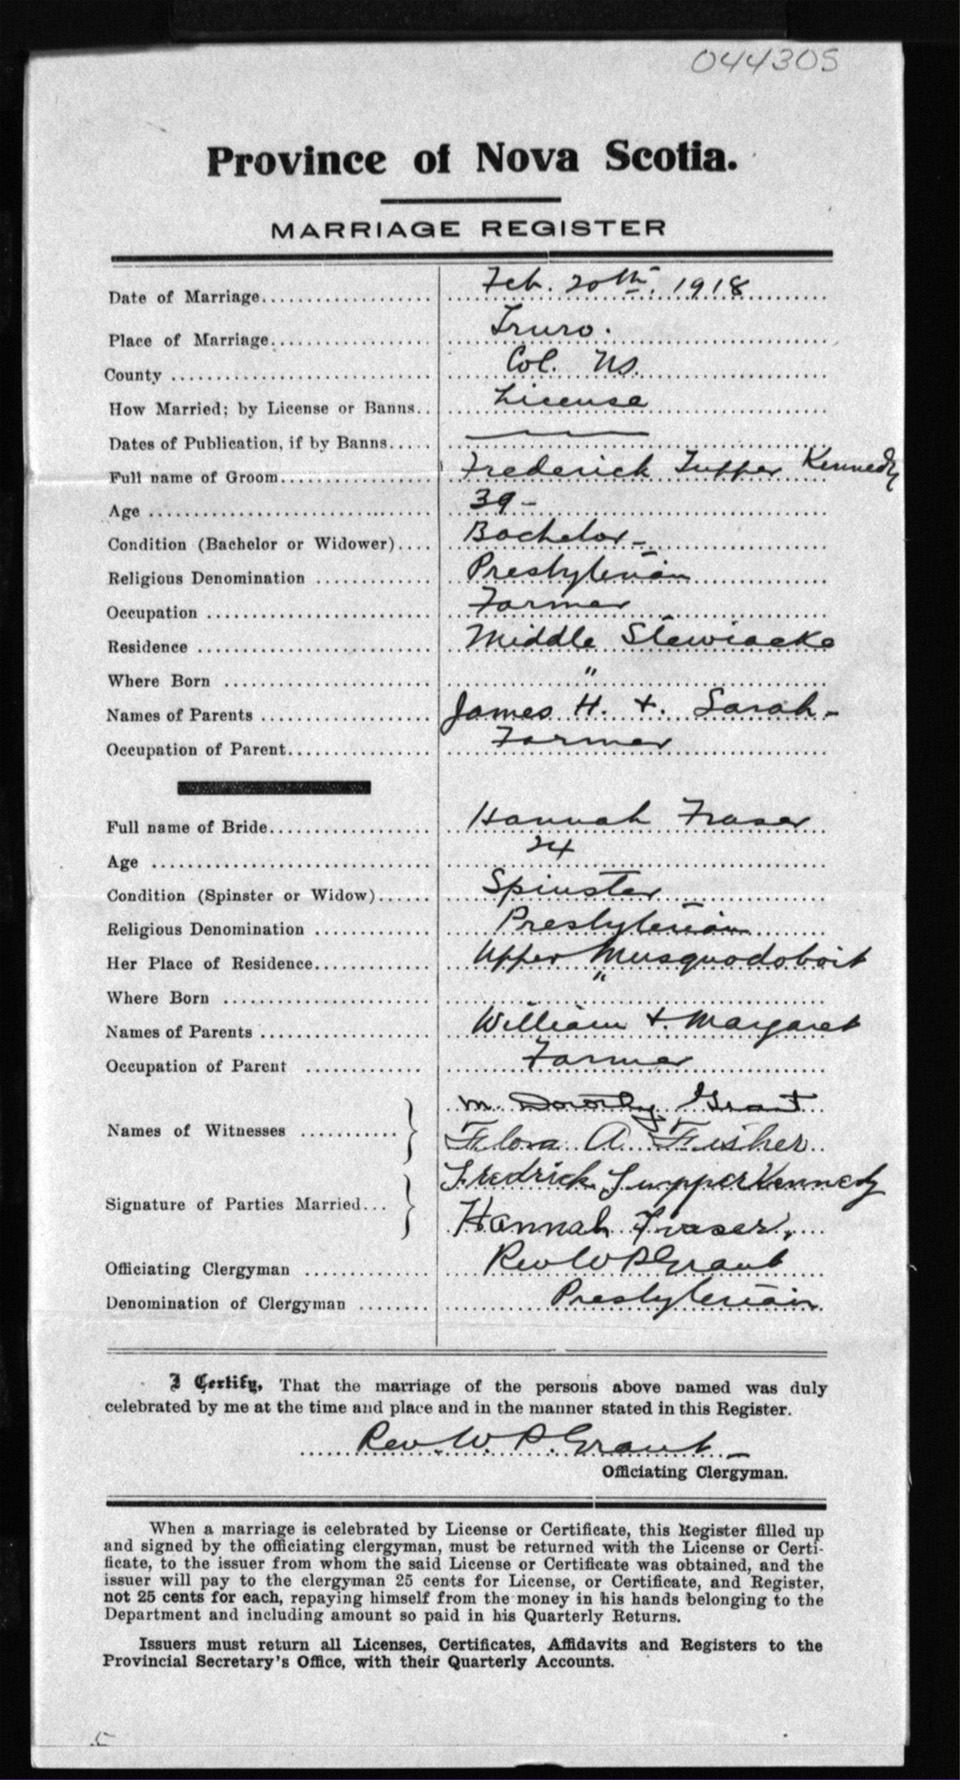 044305
Province of Nova Scotia.
MARRIAGE REGISTER
Date of Marriage.................... Feb. 20th, 1918
Place of Marriage.................... Truro.
County .................... Col. NS.
How Married; by License or Banns.. License
Dates of Publication, if by Banns..... ———
Full name of Groom.................... Frederick Tupper Kennedy
Age .................... 39 -
Condition (Bachelor or Widower).... Bachelor -
Religious Denomination ............ Presbyterian
Occupation .................... Farmer
Residence .................... Middle Stewiacke
Where Born .................... "
Names of Parents .................... James H. +. Sarah -
Occupation of Parent.................... Farmer
Full name of Bride.................... Hannah Fraser
Age .................... 24
Condition (Spinster or Widow)...... Spinster
Religious Denomination ............ Presbyterian
Her Place of Residence............ Upper Musquodoboit
Where Born .................... "
Names of Parents .................... William +. Margaret
Occupation of Parent ............ Farmer
M. Dorothy Grant
Names of Witnesses ............ Flora A Fisher
Fredrick Tupper Kennedy
Signature of Parties Married... Hannah Fraser.
Officiating Clergyman ............ Rev W P Grant
Denomination of Clergyman ........ Presbyterian
I Certify, That the marriage of the persons above named was duly
celebrated by me at the time and place and in the manner stated in this Register.
Rev. W. P. Grant -
Officiating Clergyman.
When a marriage is celebrated by License or Certificate, this Register filled up
and signed by the officiating clergyman, must be returned with the License or Certi-
ficate, to the issuer from whom the said License or Certificate was obtained, and the
issuer will pay to the clergyman 25 cents for License, or Certificate, and Register,
not 25 cents for each, repaying himself from the money in his hands belonging to the
Department and including amount so paid in his Quarterly Returns.
Issuers must return all Licenses, Certificates, Affidavits and Registers to the
Provincial Secretary's Office, with their Quarterly Accounts.